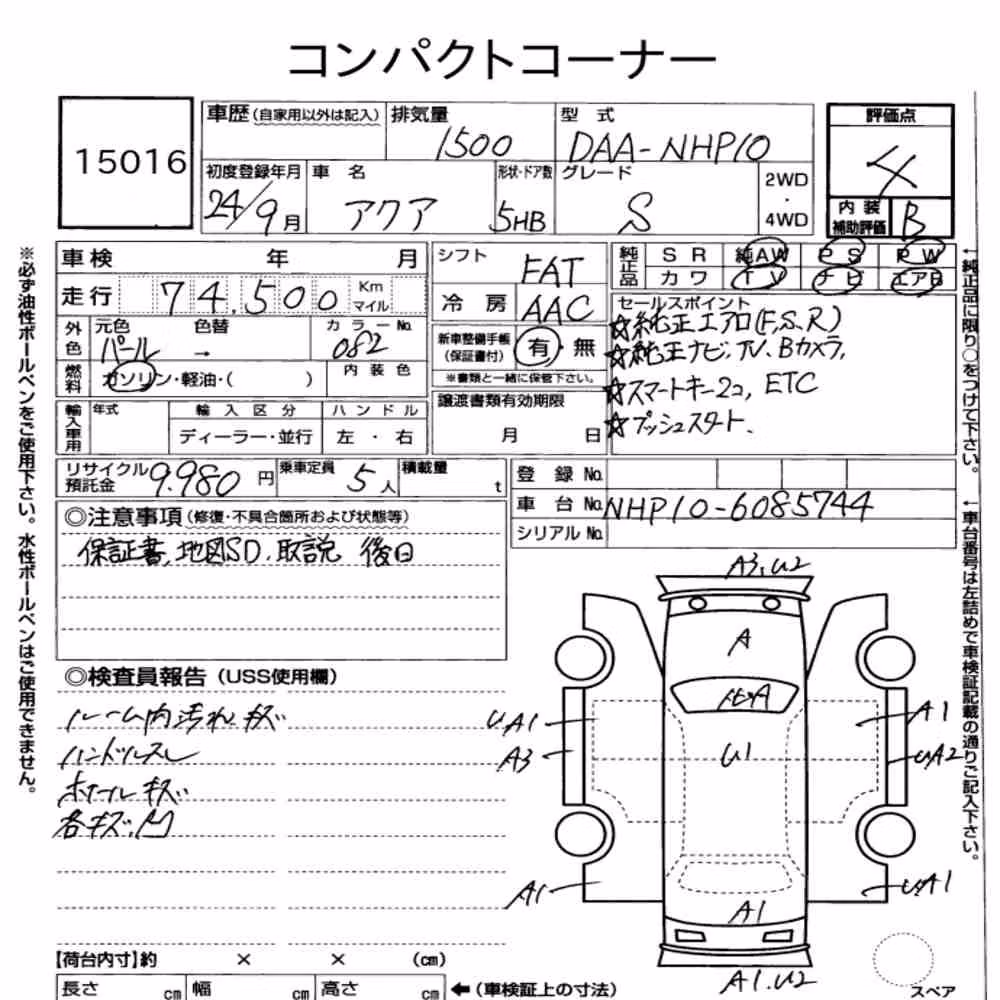 コンパクトコーナー
15016
車歴(自家用以外は記入) 排気量 1500 型式 DAA-NHP10
初度登録年月 24/9月 車名 アクア 形状・ドア数 5HB グレード S 2WD・4WD
評価点 4
内装補助評価 B
車検 年 月
走行 74,500 Km マイル
外色 元色 パール 色替 → カラーNo. 082
燃料 ガソリン・軽油・( ) 内装色
輸入車用 年式 輸入区分 ディーラー・並行 ハンドル 左・右
シフト FAT
冷房 AAC
新車整備手帳(保証書付) 有・無
※書類と一緒に保管下さい。
譲渡書類有効期限
月 日
純正品 SR 純AW PS PW
カワ TV ナビ エアB
セールスポイント
☆純正エアロ(F,S,R)
☆純正ナビ,TV、Bカメラ,
☆スマートキー2コ, ETC
☆プッシュスタート、
リサイクル預託金 9.980円 乗車定員 5人 積載量 t
登録No.
車台No. NHP10-6085744
シリアルNo.
◎注意事項(修復・不具合箇所および状態等)
保証書,地図SD.取説 後日
◎検査員報告(USS使用欄)
ルーム内汚れ,キズ
ハンドルスレ
ホイールキズ
各キズ,凹
A3,U2
A
A
U1
UA1
A3
A1
A1
UA2
UA1
A1
A1.U2
スペア
【荷台内寸】約 × × (cm)
長さ cm 幅 cm 高さ cm ←(車検証上の寸法)
※必ず油性ボールペンをご使用下さい。水性ボールペンはご使用できません。
←純正品に限り○をつけて下さい。
←車台番号は左詰めで車検証記載の通りご記入下さい。